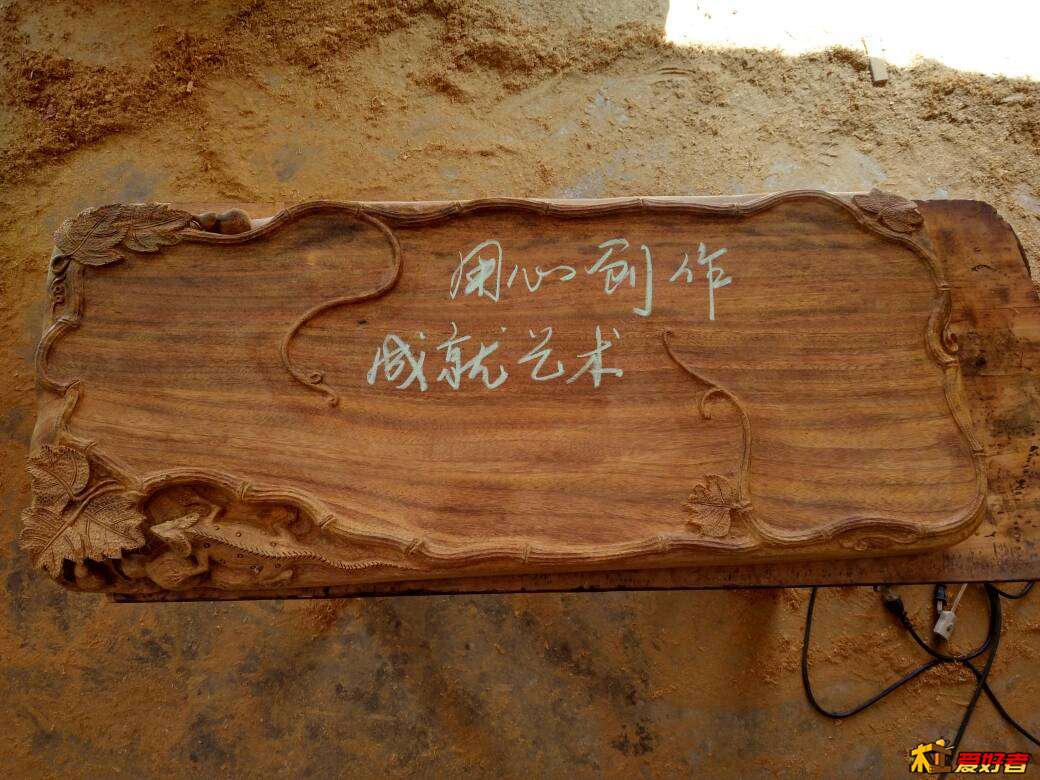 用心创作
成就艺术
木工爱好者